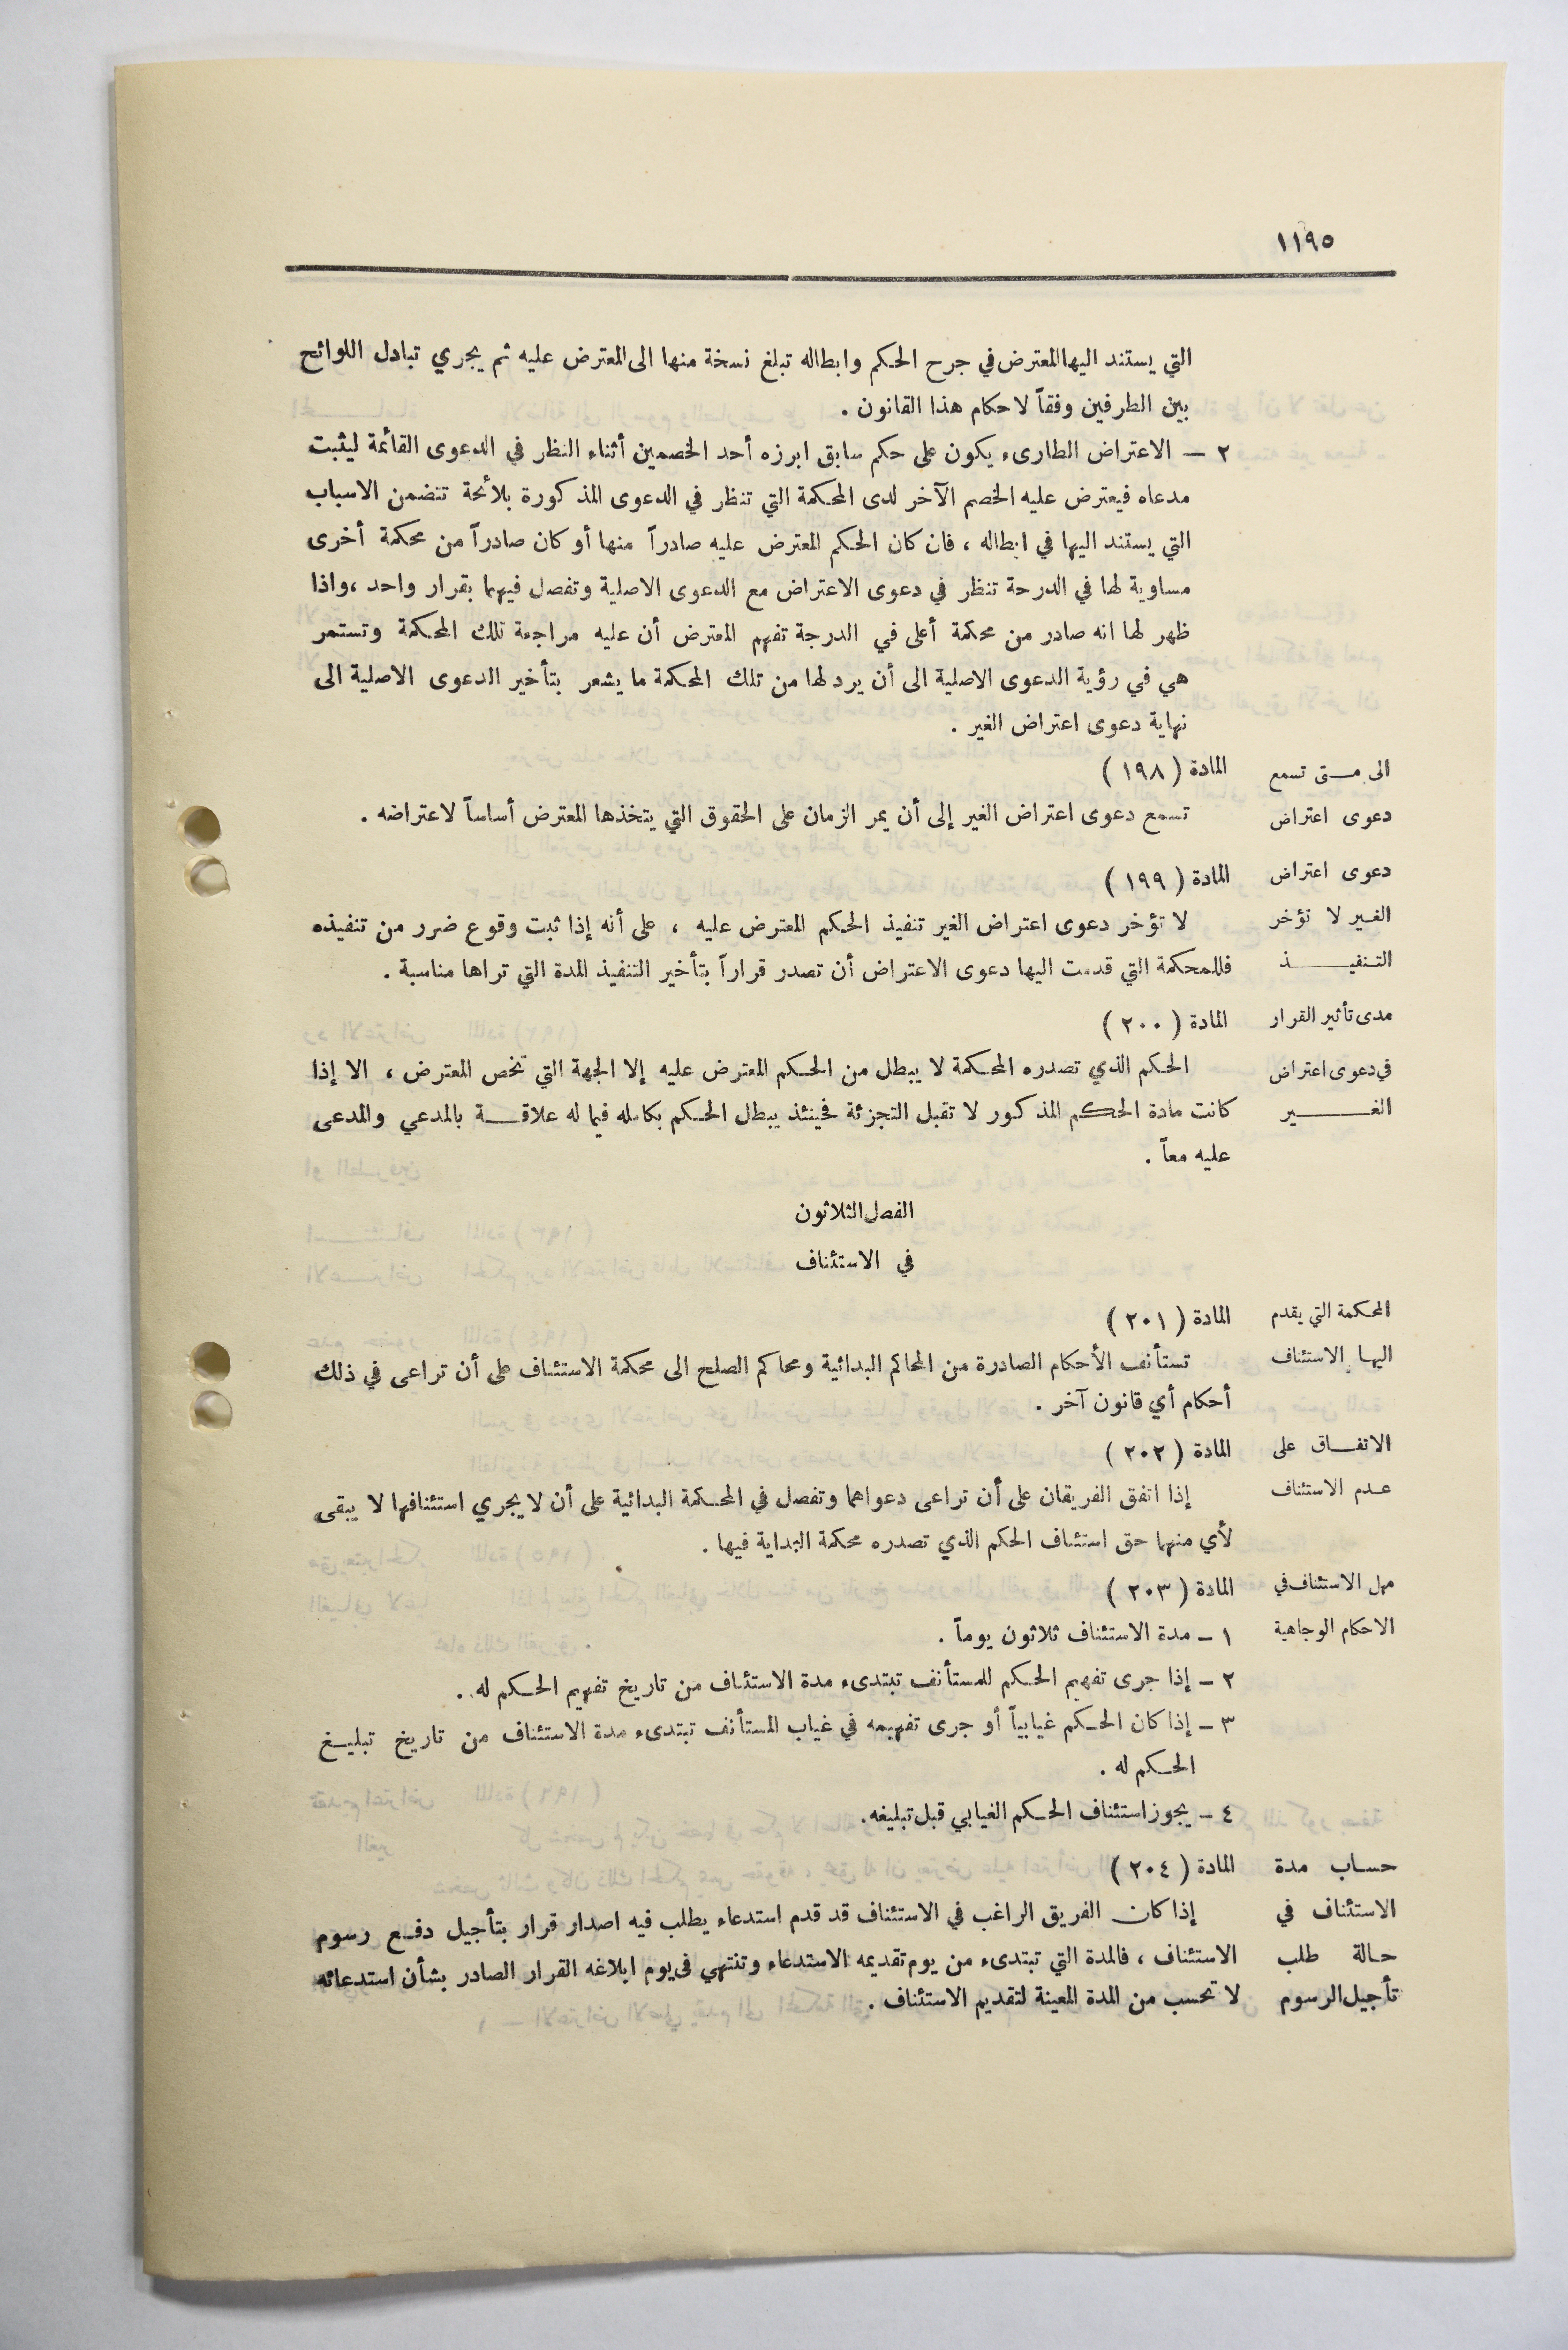 ١١٩٥
التي يستند اليها المعترض في جرح الحكم وابطاله تبلغ نسخة منها الى المعترض عليه ثم يجري تبادل اللوائح
بين الطرفين وفقاً لاحكام هذا القانون .
٢ – الاعتراض الطارىء يكون على حكم سابق ابرزه أحد الخصمين أثناء النظر في الدعوى القائمة ليثبت
مدعاه فيعترض عليه الخصم الآخر لدى المحكمة التي تنظر في الدعوى المذكورة بلائحة تتضمن الاسباب
التي يستند اليها في ابطاله ، فان كان الحكم المعترض عليه صادراً منها أو كان صادراً من محكمة أخرى
مساوية لها في الدرجة تنظر في دعوى الاعتراض مع الدعوى الاصلية وتفصل فيهما بقرار واحد ، واذا
ظهر لها انه صادر من محكمة أعلى في الدرجة تفهم المعترض أن عليه مراجعة تلك المحكمة وتستمر
هي في رؤية الدعوى الاصلية الى أن يرد لها من تلك المحكمة ما يشعر بتأخير الدعوى الاصلية الى
نهاية دعوى اعتراض الغير .
الى متى تسمع
دعوى اعتراض
المادة ( ١٩٨ )
تسمع دعوى اعتراض الغير إلى أن يمر الزمان على الحقوق التي يتخذها المعترض أساساً لاعتراضه .
دعوى اعتراض
الغير لا تؤخر
التنفيذ
المادة ( ١٩٩ )
لا تؤخر دعوى اعتراض الغير تنفيذ الحكم المعترض عليه ، على أنه إذا ثبت وقوع ضرر من تنفيذه
فللمحكمة التي قدمت اليها دعوى الاعتراض أن تصدر قراراً بتأخير التنفيذ المدة التي تراها مناسبة .
مدى تأثير القرار
في دعوى اعتراض
الغير
المادة ( ٢٠٠ )
الحكم الذي تصدره المحكمة لا يبطل من الحكم المعترض عليه إلا الجهة التي تخص المعترض ، الا إذا
كانت مادة الحكم المذكور لا تقبل التجزئة فحينئذ يبطل الحكم بكامله فيما له علاقة بالمدعي والمدعى
عليه معاً .
الفصل الثلاثون
في الاستئناف
المحكمة التي يقدم
اليها الاستئناف
المادة ( ٢٠١ )
تستأنف الأحكام الصادرة من المحاكم البدائية ومحاكم الصلح الى محكمة الاستئناف على أن تراعى في ذلك
أحكام أي قانون آخر .
الاتفاق على
عدم الاستئناف
المادة ( ٢٠٢ )
إذا اتفق الفريقان على أن تراعى دعواهما وتفصل في المحكمة البدائية على أن لا يجري استئنافها لا يبقى
لأي منهما حق استئناف الحكم الذي تصدره محكمة البداية فيها .
مهل الاستئناف في
الاحكام الوجاهية
المادة ( ٢٠٣ )
١ – مدة الاستئناف ثلاثون يوماً .
٢ – إذا جرى تفهيم الحكم للمستأنف تبتدىء مدة الاستئناف من تاريخ تفهيم الحكم له .
٣ – إذا كان الحكم غيابياً أو جرى تفهيمه في غياب المستأنف تبتدىء مدة الاستئناف من تاريخ تبليغ
الحكم له .
٤ – يجوز استئناف الحكم الغيابي قبل تبليغه .
حساب مدة
الاستئناف في
حالة طلب
تأجيل الرسوم
المادة ( ٢٠٤ )
إذا كان الفريق الراغب في الاستئناف قد قدم استدعاء يطلب فيه اصدار قرار بتأجيل دفع رسوم
الاستئناف ، فالمدة التي تبتدىء من يوم تقديمه الاستدعاء وتنتهي في يوم ابلاغه القرار الصادر بشأن استدعائه
لا تحسب من المدة المعينة لتقديم الاستئناف .